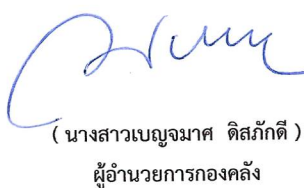 ( นางสาวเบญจมาศ ดิสภักดี )
ผู้อำนวยการกองคลัง